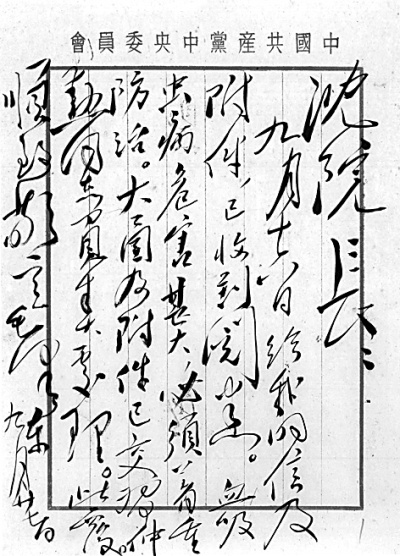 中國共產黨中央委員會
沈院長：
九月十六日給我的信及
附件，已收到閱悉。血吸
虫病危害甚大，必須着重
防治。大函及附件已交習仲
勛同志負責處理。此覆。
順致敬意 毛澤東
九月廿七日